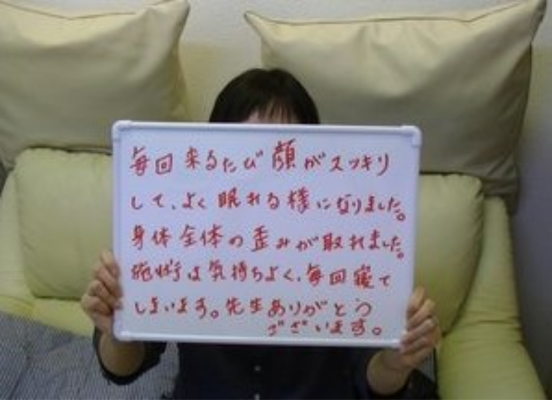 毎回来るたび顔がスッキリ
して、よく眠れる様になりました。
身体全体の歪みが取れました。
施術は気持ちよく、毎回寝て
しまいます。先生ありがとう
ございます。